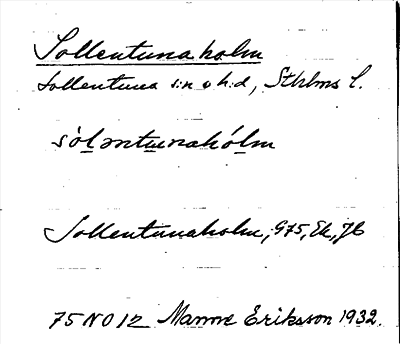 Sollentunaholm
Sollentuna s:n o h:d, Sthlms l.
sòləntunahólm
Sollentunaholm, G75, Ek, Jb
75 NO 12 Manne Eriksson 1932.